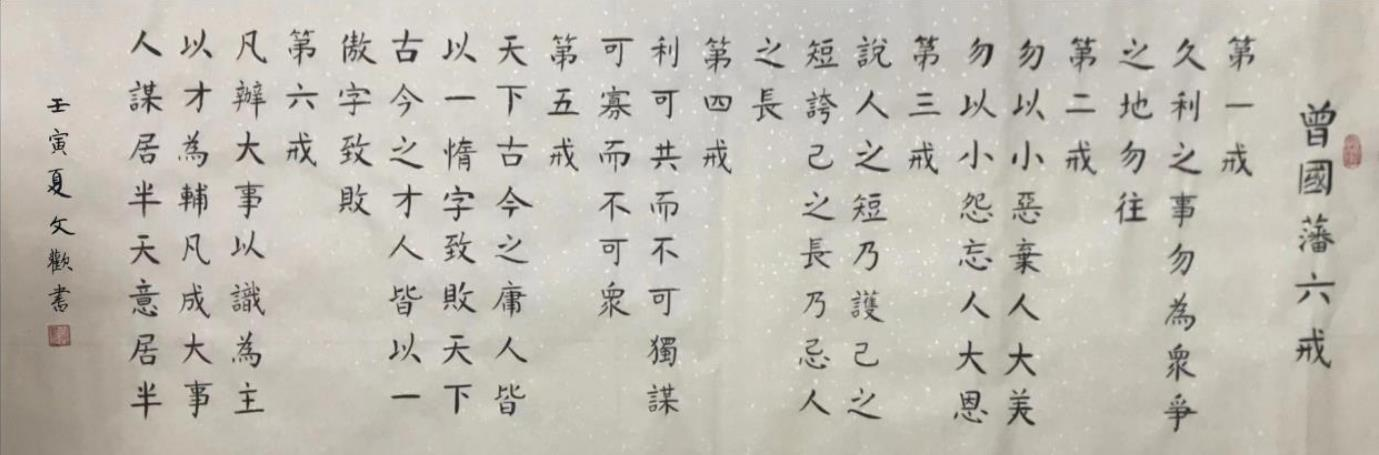 曾國藩六戒
第一戒
久利之事勿為衆爭
之地勿往
第二戒
勿以小惡棄人大美
勿以小怨忘人大恩
第三戒
說人之短乃護己之
短誇己之長乃忌人
之長
第四戒
利可共而不可獨謀
可寡而不可衆
第五戒
天下古今之庸人皆
以一惰字致敗天下
古今之才人皆以一
傲字致敗
第六戒
凡辦大事以識為主
以才為輔凡成大事
人謀居半天意居半
壬寅夏文歡書